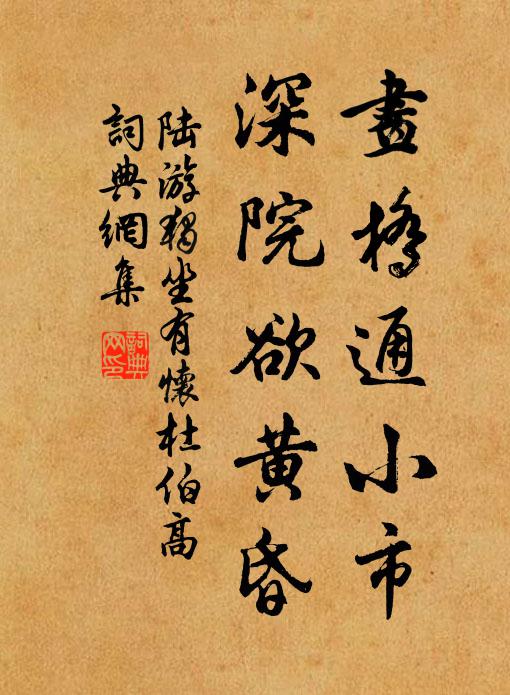 畫橋通小市
深院欲黃昏
陸游獨坐有懷杜伯高
詞典網集
詞典網印